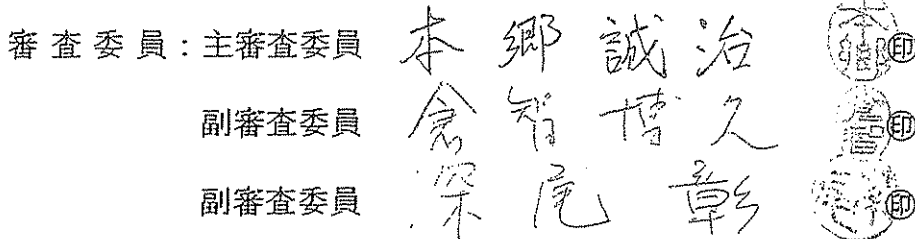 審査委員：主審査委員 本郷誠治 ㊞
副審査委員 倉智博久 ㊞
副審査委員 深尾彰 ㊞